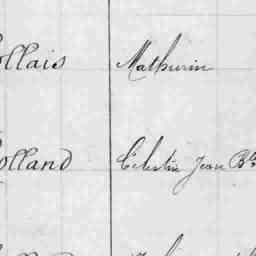 ollais Mathurin
olland Celestin Jean Bte